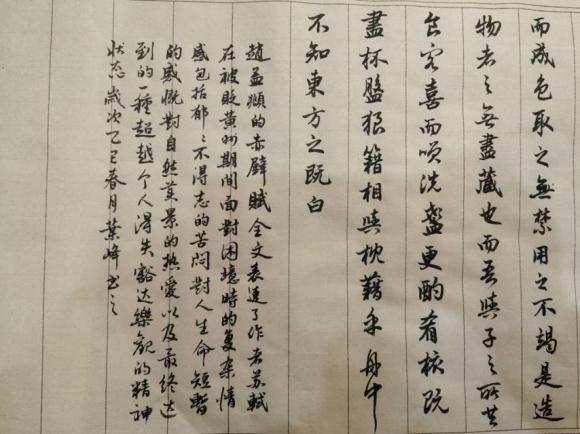 而成色取之無禁用之不竭是造
物者之無盡藏也而吾與子之所共
食客喜而唉洗盞更酌肴核既
盡杯盤狼籍相與枕藉乎舟中
不知東方之既白
趙孟頫的赤壁賦全文表達了作者苏軾
在被貶黄州期间面對困境時的复杂情
感包括郁〻不得志的苦闷對人生命短暫
的感慨對自然美景的热爱以及最终达
到的一種超越个人得失豁达樂觀的精神
状态歲次乙巳春月葉峰书之